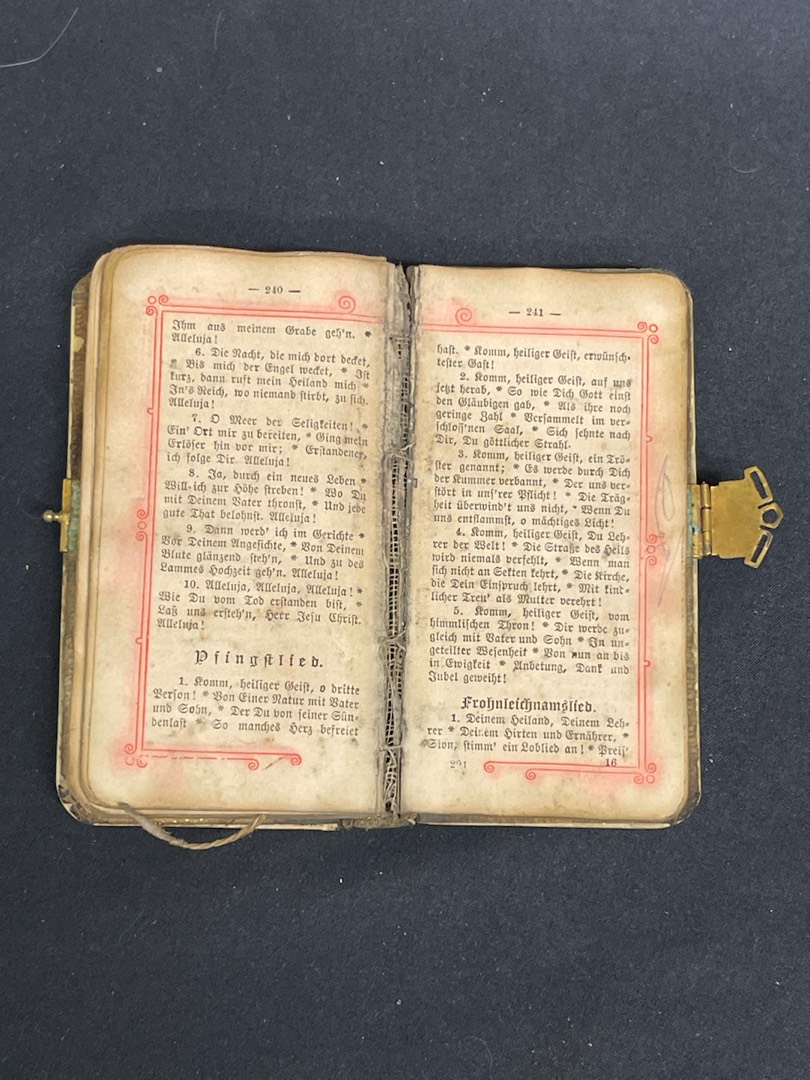 — 240 —
Ihm aus meinem Grabe geh'n. *
Alleluja!
6. Die Nacht, die mich dort decket,
* Bis mich der Engel wecket, * Ist
kurz, dann ruft mein Heiland mich *
In's Reich, wo niemand stirbt, zu sich.
Alleluja!
7. O Meer der Seligkeiten! *
Ein' Ort mir zu bereiten, * Ging mein
Erlöser hin vor mir; * Erstandener,
ich folge Dir. Alleluja!
8. Ja, durch ein neues Leben *
Will ich zur Höhe streben! * Wo Du
mit Deinem Vater thronst, * Und jede
gute That belohnst. Alleluja!
9. Dann werd' ich im Gerichte *
Vor Deinem Angesichte, * Von Deinem
Blute glänzend steh'n, * Und zu des
Lammes Hochzeit geh'n. Alleluja!
10. Alleluja, Alleluja, Alleluja! *
Wie Du vom Tod erstanden bist, *
Laß uns ersteh'n, Herr Jesu Christ.
Alleluja!
Pfingstlied.
1. Komm, heiliger Geist, o dritte
Person! * Von Einer Natur mit Vater
und Sohn, * Der Du von seiner Sün-
denlast * So manches Herz befreiet
— 241 —
hast. * Komm, heiliger Geist, erwünsch-
tester Gast!
2. Komm, heiliger Geist, auf uns
jetzt herab, * So wie Dich Gott einst
den Gläubigen gab, * Als ihre noch
geringe Zahl * Versammelt im ver-
schloss'nen Saal, * Sich sehnte nach
Dir, Du göttlicher Strahl.
3. Komm, heiliger Geist, ein Trö-
ster genannt; * Es werde durch Dich
der Kummer verbannt, * Der uns ver-
stört in uns'rer Pflicht! * Die Träg-
heit überwind't uns nicht, * Wenn Du
uns entflammst, o mächtiges Licht!
4. Komm, heiliger Geist, Du Leh-
rer der Welt! * Die Straße des Heils
wird niemals verfehlt, * Wenn man
sich nicht an Sekten kehrt, * Die Kirche,
die Dein Einspruch lehrt, * Mit kind-
licher Treu' als Mutter verehrt!
5. Komm, heiliger Geist, vom
himmlischen Thron! * Dir werde zu-
gleich mit Vater und Sohn * In un-
geteilter Wesenheit * Von nun an bis
in Ewigkeit * Anbetung, Dank und
Jubel geweiht!
Frohnleichnamslied.
1. Deinem Heiland, Deinem Leh-
rer * Deinem Hirten und Ernährer, *
Sion, stimm' ein Loblied an! * Preis'
291 16